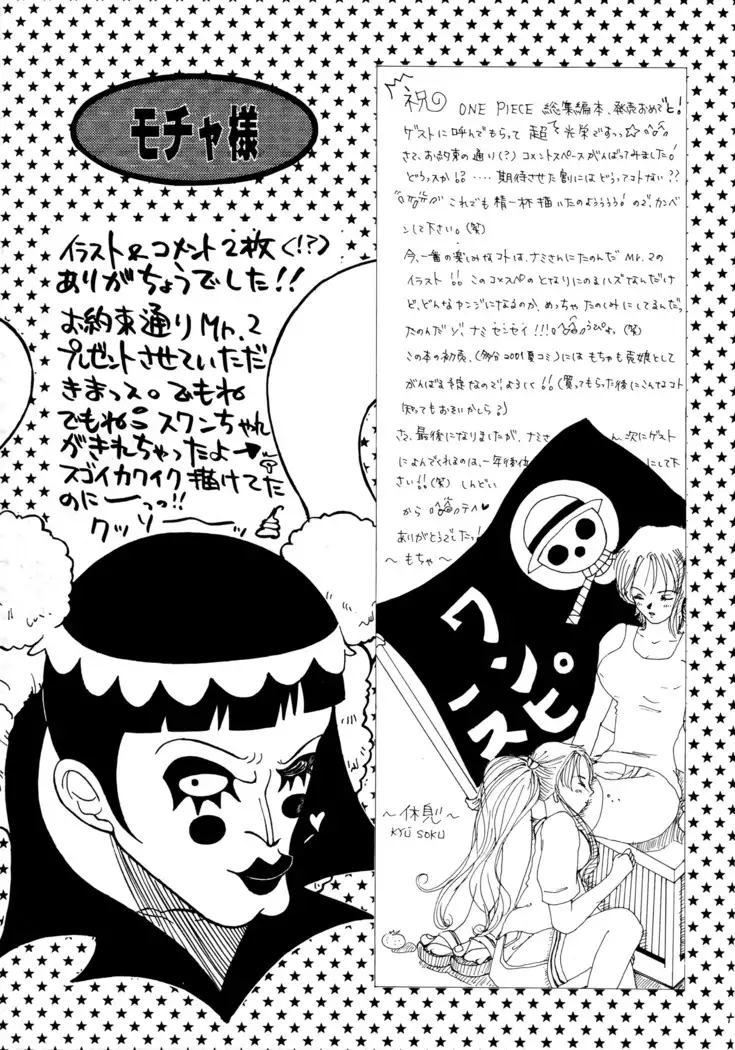 モチャ様
イラスト&コメント2枚(!?)
ありがちょうでした!!
お約束通りMr.2
プレゼントさせていただ
きまっス。でもね
でもね スワンちゃん
がきれちゃったよ
スゴイカワイク描けてた
のにーっっ!!
クッソーーッ
祝 ONE PIECE 総集編本、発売おめでと!
ゲストに呼んでもらって超光栄ですっっ☆
さて、お約束の通り(?)コメントスペースがんばってみました!
どうっスか!?‥‥期待させた割にはどうってコトない??
これでも精一杯描いたのようううう!ので、カンベ
ンして下さい。(笑)
今、一番の楽しみなコトは、ナミさんにたのんだMr.2の
イラスト!!このコメスペのとなりにのるハズなんだけ
ど、どんなカンジになるのか、めっちゃたのしみにしてるんだっ
たのんだゾ、ナミセンセイ!!! うぴょ。(笑)
この本の初売、(多分2001夏コミ)にはもちゃも売娘として
がんばる予定なので、よろしく!!(買ってもらった後にこんなコト
知ってもおそいかしら?)
さぁ、最後になりましたが、ナミさ ん、次にゲスト
によんでくれるのは、一年後位 にして下
さい!!(笑) しんどい
から テヘ♥
ありがとうでしたっ!
～もちゃ～
ワンピース
～休息～
KYŪ SOKU